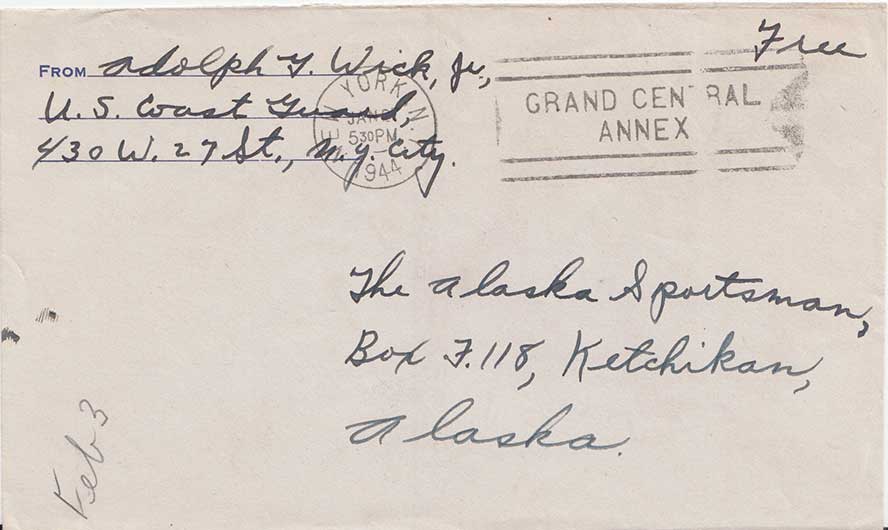 Free
FROM Adolph T. Wick, Jr.,
U. S. Coast Guard,
430 W. 27 St., N.Y. City.
YORK, N.
JAN
5 30 PM
1944
GRAND CENTRAL
ANNEX
The Alaska Sportsman,
Box F.118, Ketchikan,
Alaska.
Feb 3